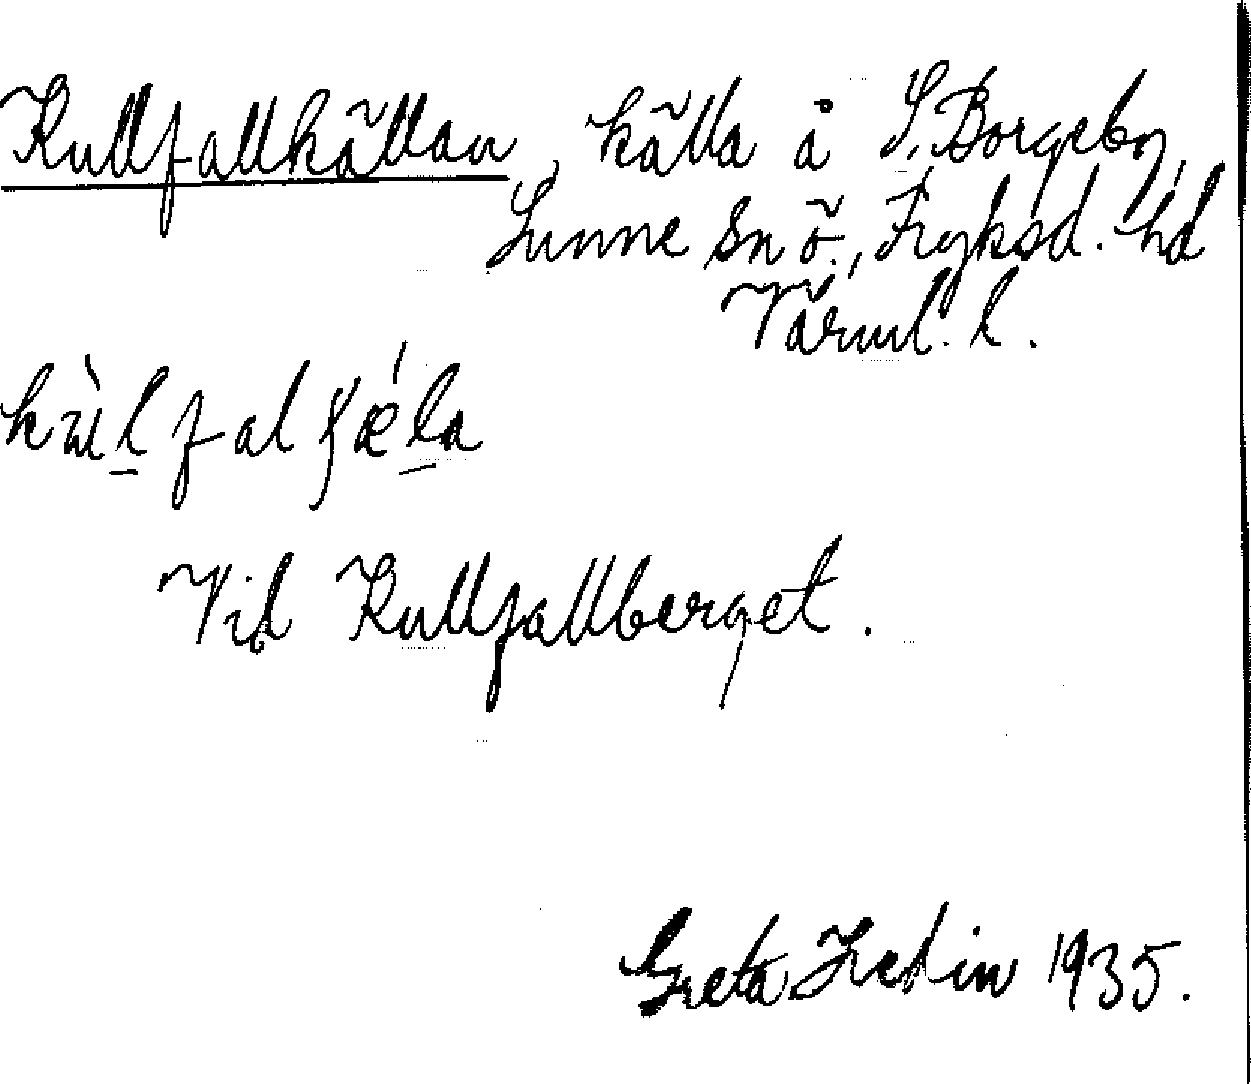 Kullfallkällan, källa å S. Borgeby,
Sunne sn ö., Fryksd. hd
Värml. l.
Vid Kullfallberget.
Greta Hedin 1935.